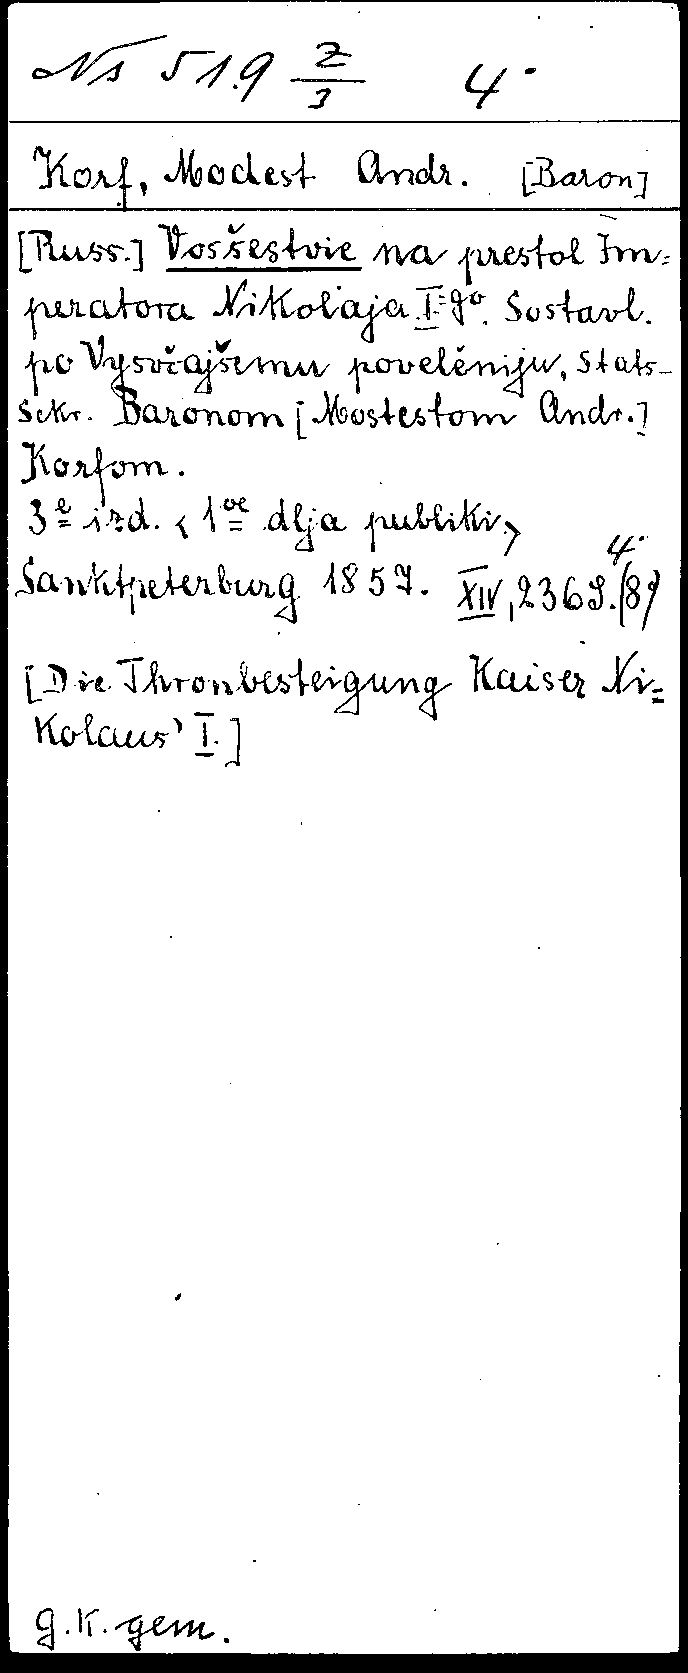 Ns 519 Z/3 4°
Korf, Modest Andr. [Baron]
[Russ.] Vosšestvie na prestol Im=
peratora Nikolaja I=go. Sostavl.
po Vysočajšemu povelěniju, Stats-
Sekr. Baronom [Mostestom Andr.]
Korfom.
3e izd. <1oe dlja publiki>
Sanktpeterburg 1857. XIV, 236 S. (8) 4°
[Die Thronbesteigung Kaiser Ni=
kolaus' I.]
g.K. gem.